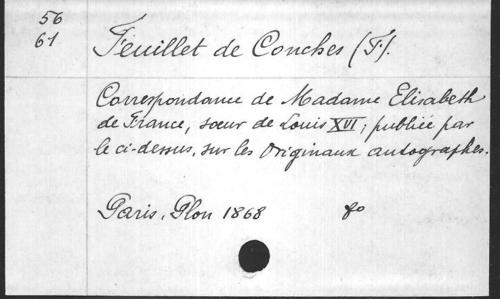 56
61
Feuillet de Conches (F).
Correspondance de Madame Elisabeth
de France, soeur de Louis XVI; publiée par
le ci-dessus, sur les Originaux autographes.
Paris, Plon 1868 8o